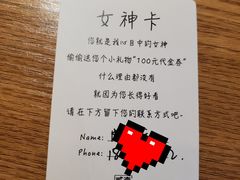 女神卡
您就是我心目中的女神
偷偷送您个小礼物"100元代金券"
什么理由都没有
就因为您长得好看
请在下方留下您的联系方式吧~
Name:
Phone: